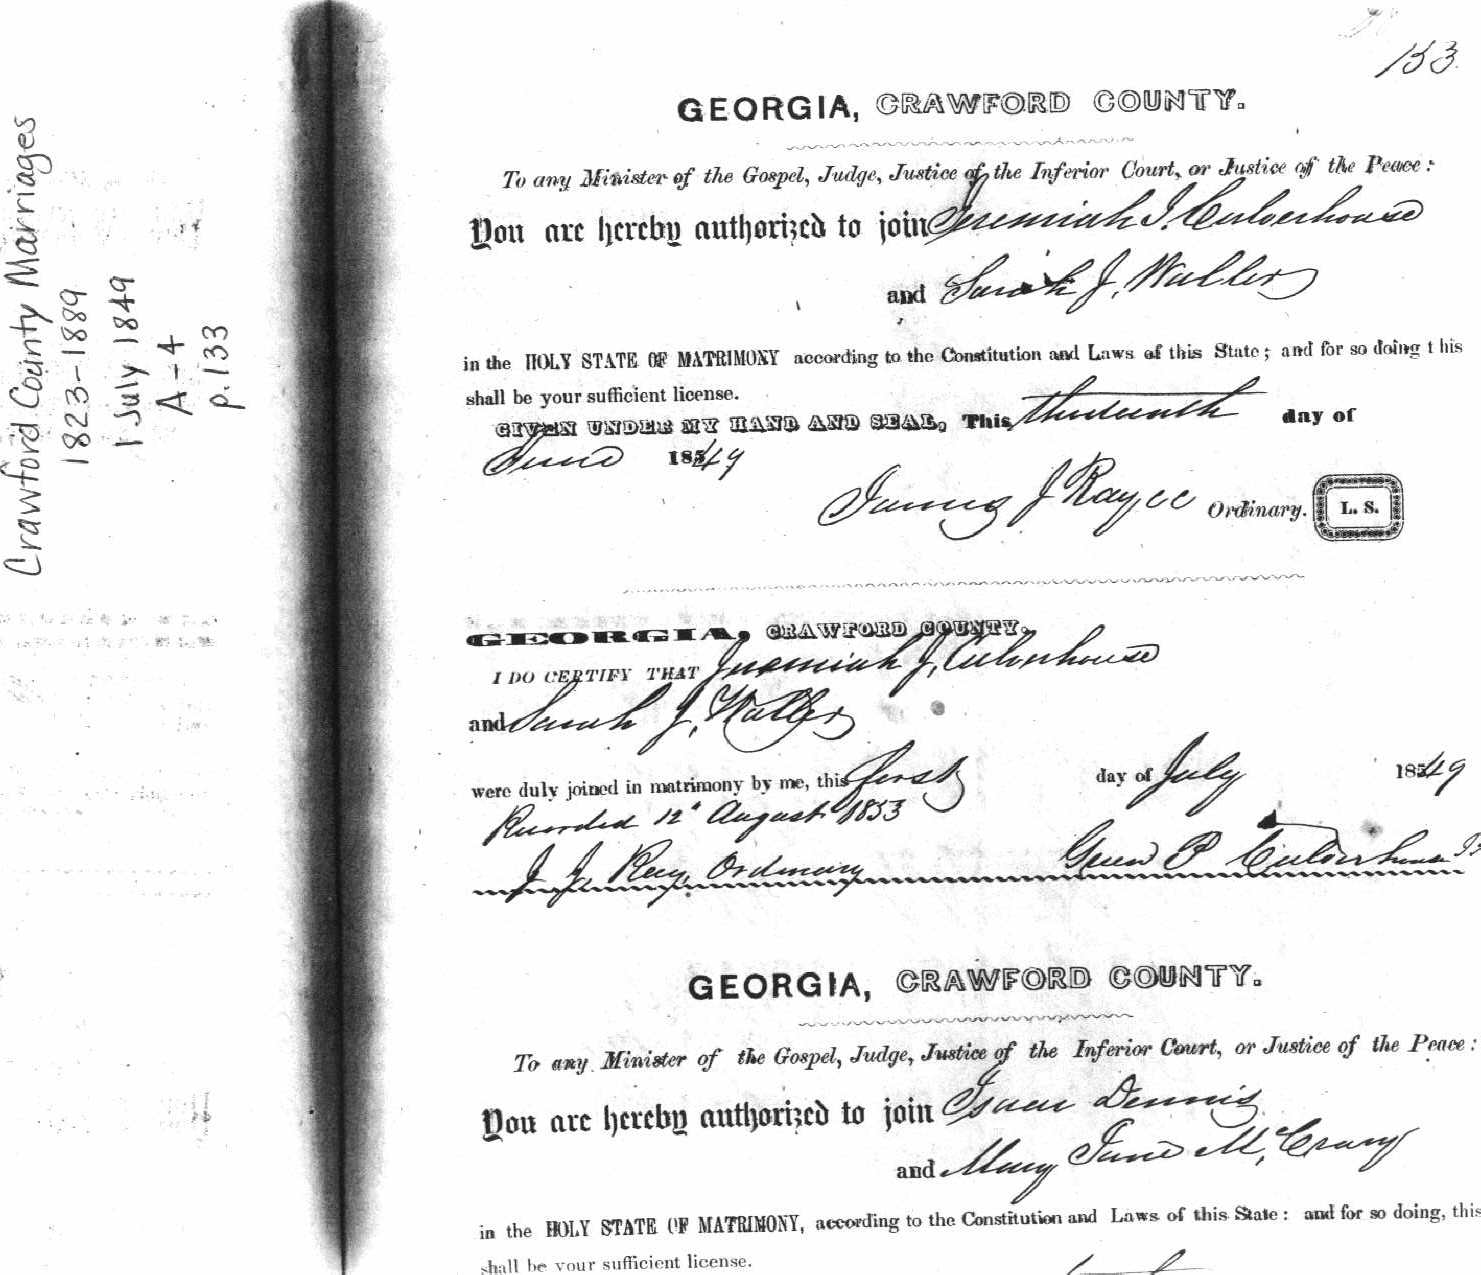 Crawford County Marriages
1823-1889
1 July 1849
A-4
p.133
133.
GEORGIA, CRAWFORD COUNTY.
To any Minister of the Gospel, Judge, Justice of the Inferior Court, or Justice of the Peace:
You are hereby authorized to join Jeremiah J. Culverhouse
and Sarah J. Waller
in the HOLY STATE OF MATRIMONY according to the Constitution and Laws of this State; and for so doing this
shall be your sufficient license.
GIVEN UNDER MY HAND AND SEAL, This thirteenth day of
June 18549
James J Ray Ordinary. L. S.
GEORGIA, CRAWFORD COUNTY.
I DO CERTIFY THAT Jeremiah J. Culverhouse
and Sarah J. Waller
were duly joined in matrimony by me, this first day of July 18549
Recorded 12" August 1853
J J Ray Ordinary Green P Culverhouse
GEORGIA, CRAWFORD COUNTY.
To any Minister of the Gospel, Judge, Justice of the Inferior Court, or Justice of the Peace:
You are hereby authorized to join Isaac Dennis
and Mary Jane McCrary
in the HOLY STATE OF MATRIMONY, according to the Constitution and Laws of this State: and for so doing, this
shall be your sufficient license.